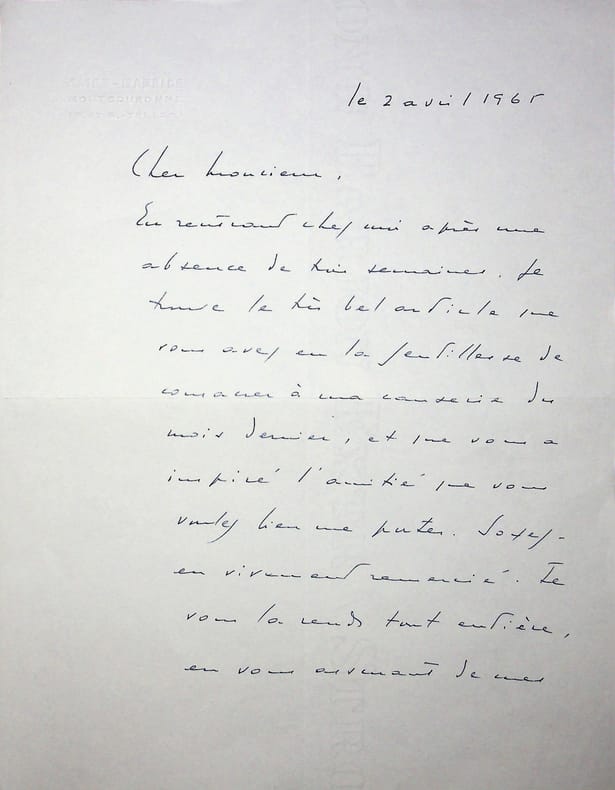 le 2 avril 1965
Cher Monsieur,
En rentrant chez moi après une
absence de trois semaines, je
trouve le très bel article que
vous avez eu la gentillesse de
consacrer à ma causerie du
mois dernier, et que vous a
inspiré l'amitié que vous
voulez bien me porter. Soyez-
en vivement remercié. Je
vous la rends tout entière,
en vous assurant de mes